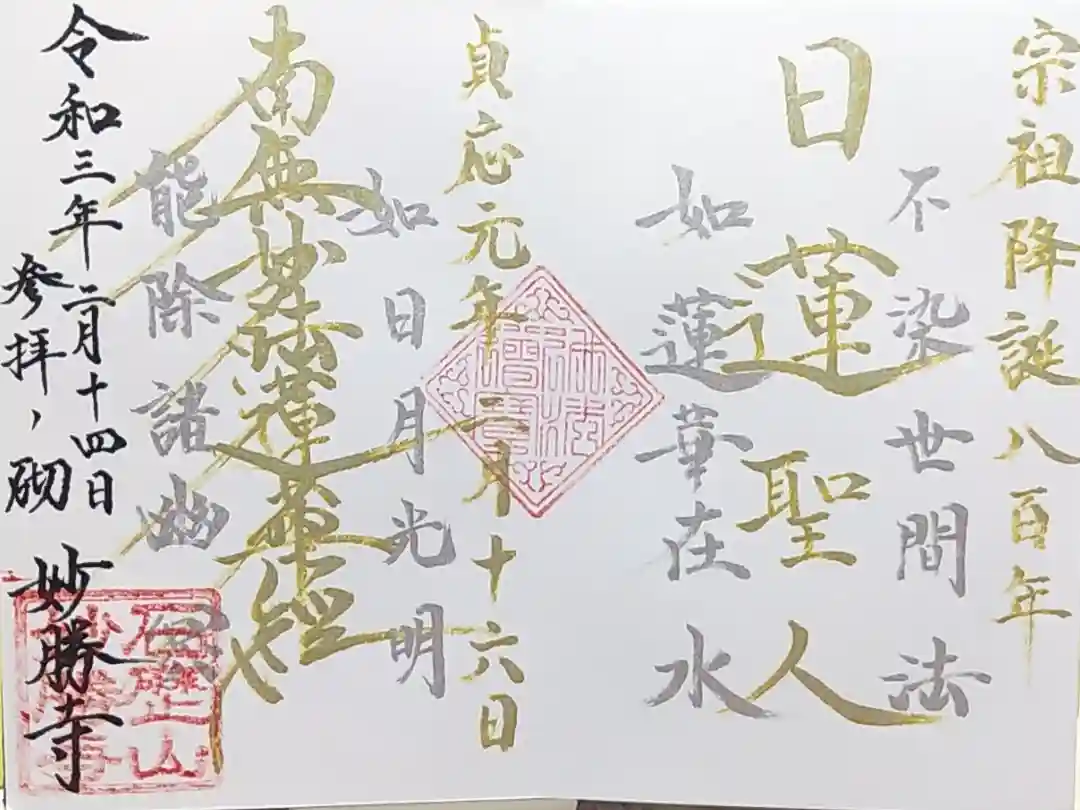 宗祖降誕八百年
不染世間法
日蓮聖人
如蓮華在水
貞応元年二月十六日
如日月光明
南無妙法蓮華経
能除諸幽冥
令和三年二月十四日
参拝、砌
妙勝寺
妙勝寺